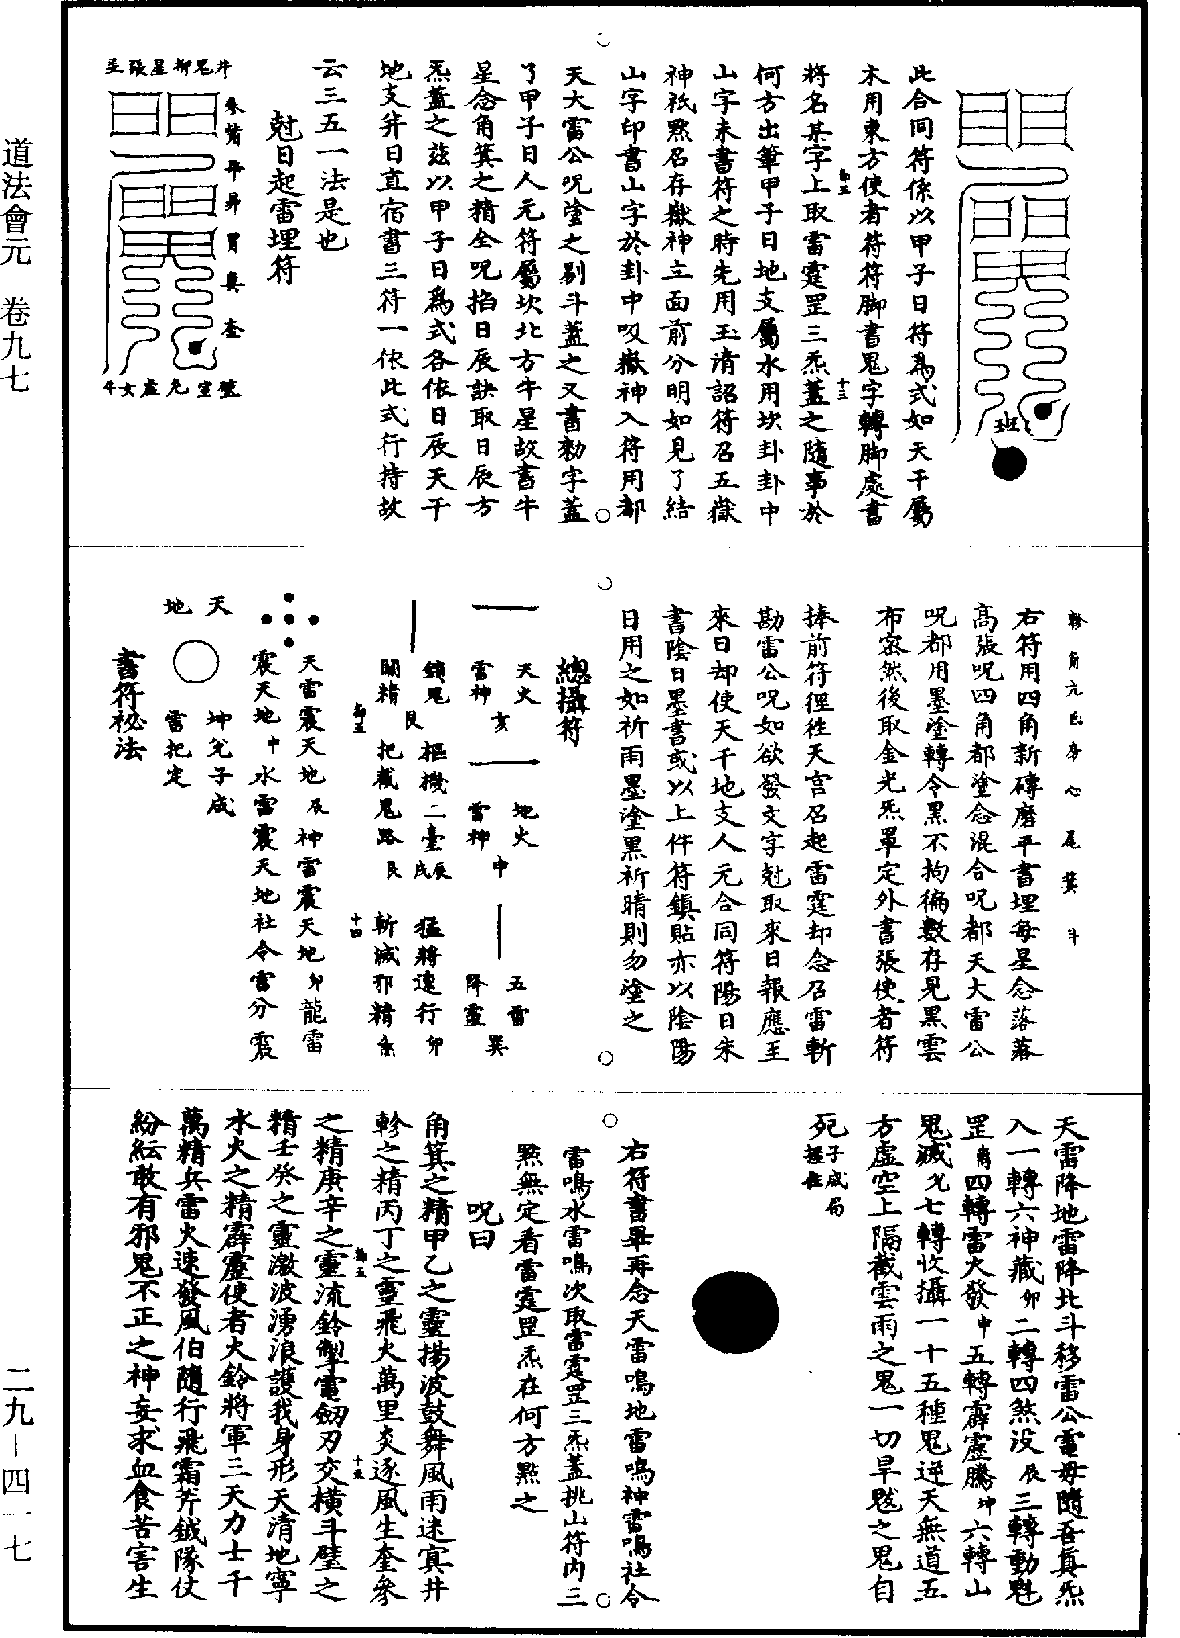 道法會元　卷九七
二九—四一七
班
此合同符係以甲子日符爲式如天干屬
木用東方使者符符脚書鬼字轉脚處書
將名某字上取雷霆罡三炁蓋之隨事於
何方出筆甲子日地支屬水用坎卦卦中
山字未書符之時先用玉清詔符召五嶽
神祇黙召存嶽神立面前分明如見了結
山字印書山字於卦中吸嶽神入符用都
天大雷公呪塗之剔斗蓋之又書勑字蓋
了甲子日人元符屬坎北方牛星故書牛
星念角箕之精全呪掐日辰訣取日辰方
炁蓋之兹以甲子日爲式各依日辰天干
地支并日直宿書三符一依此式行持故
云三五一法是也
尅日起雷埋符
井鬼柳星張翌
參觜畢昴胃婁奎
壁室危虛女牛
軫角亢氐房心尾箕斗
右符用四角新磚磨平書埋每星念落落
高張呪四角都塗念混合呪都天大雷公
呪都用墨塗轉令黒不拘徧數存見黒雲
布密然後取金光炁罩定外書張使者符
捧前符徑徃天宫召起雷霆却念召雷斬
勘雷公呪如欲發文字尅取來日報應至
來日却使天干地支人元合同符陽日朱
書陰日墨書或以上件符鎮貼亦以陰陽
日用之如祈雨墨塗黒祈晴則勿塗之
總攝符
天火　地火　五雷
雷神亥　雷神申　降靈巽
鎖鬼　樞機二臺辰戌　猛將速行卯
關精艮　把截鬼路艮　斬滅邪精
天雷震天地辰神雷震天地卯龍雷
震天地中水雷震天地社令雷分震
天　坤兊子戍
地　雷把定
書符祕法
天雷降地雷降北斗移雷公電母隨吾真炁
入一轉六神藏卯二轉四煞没辰三轉動魁
罡角四轉雷火發中五轉霹靂騰坤六轉山
鬼滅兊七轉收攝一十五種鬼逆天無道五
方虛空上隔截雲雨之鬼一切旱魃之鬼自
死子戍局
右符書畢再念天雷鳴地雷鳴神雷鳴社令
雷鳴水雷鳴次取雷霆罡三炁蓋挑山符内三
黙無定看雷霆罡炁在何方黙之
呪曰
角箕之精甲乙之靈揚波鼓舞風雨迷㝠井
軫之精丙丁之靈飛火萬里炎逐風生奎參
之精庚辛之靈流鈴掣電劒刃交橫斗壁之
精壬癸之靈激波湧浪護我身形天清地寧
水火之精霹靂使者火鈴將軍三天力士千
萬精兵雷火速發風伯隨行飛霜斧鉞隊仗
紛紜敢有邪鬼不正之神妄求血食苦害生